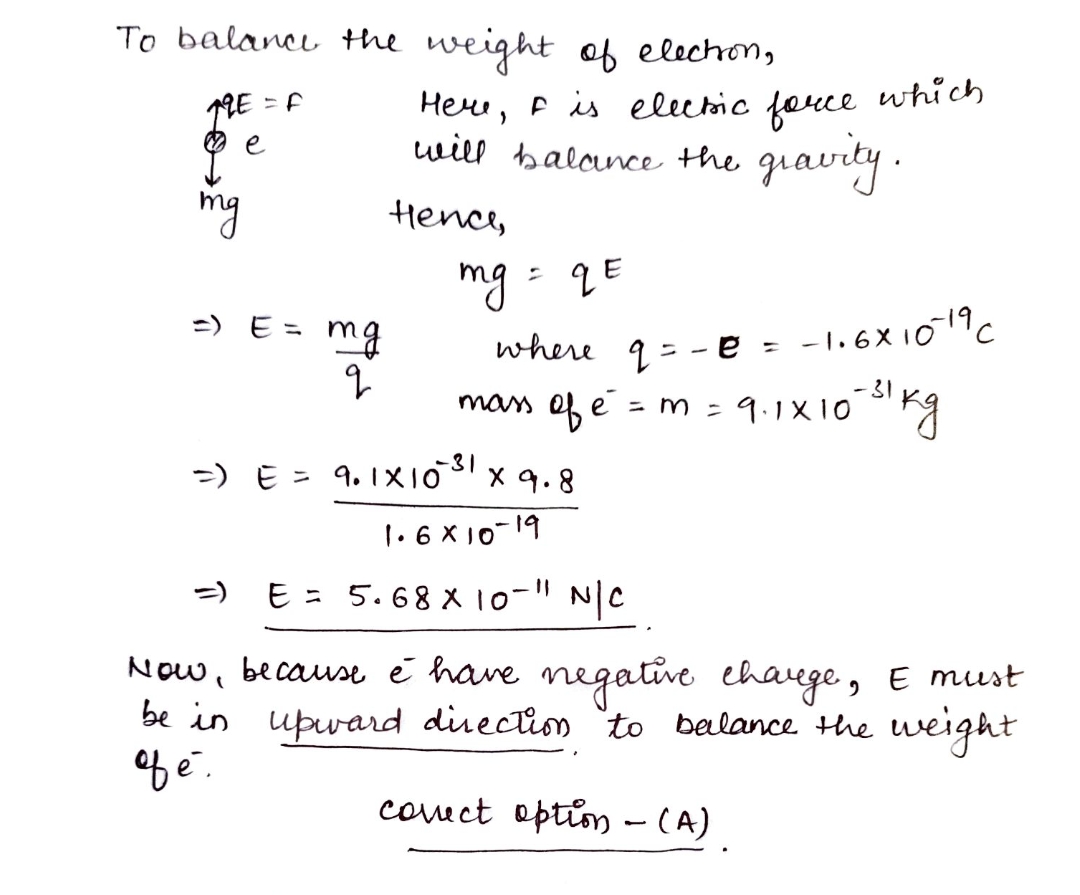 To balance the weight of electron,
qE = F Here, F is electric force which
e will balance the gravity.
mg Hence,
mg = qE
=) E = mg/q where q = -e = -1.6×10^-19 C
mass of e⁻ = m = 9.1×10^-31 kg
=) E = 9.1×10^-31 × 9.8
1.6×10^-19
=) E = 5.68×10^-11 N/C.
Now, because e⁻ have negative charge, E must
be in upward direction, to balance the weight
of e⁻.
correct option - (A).